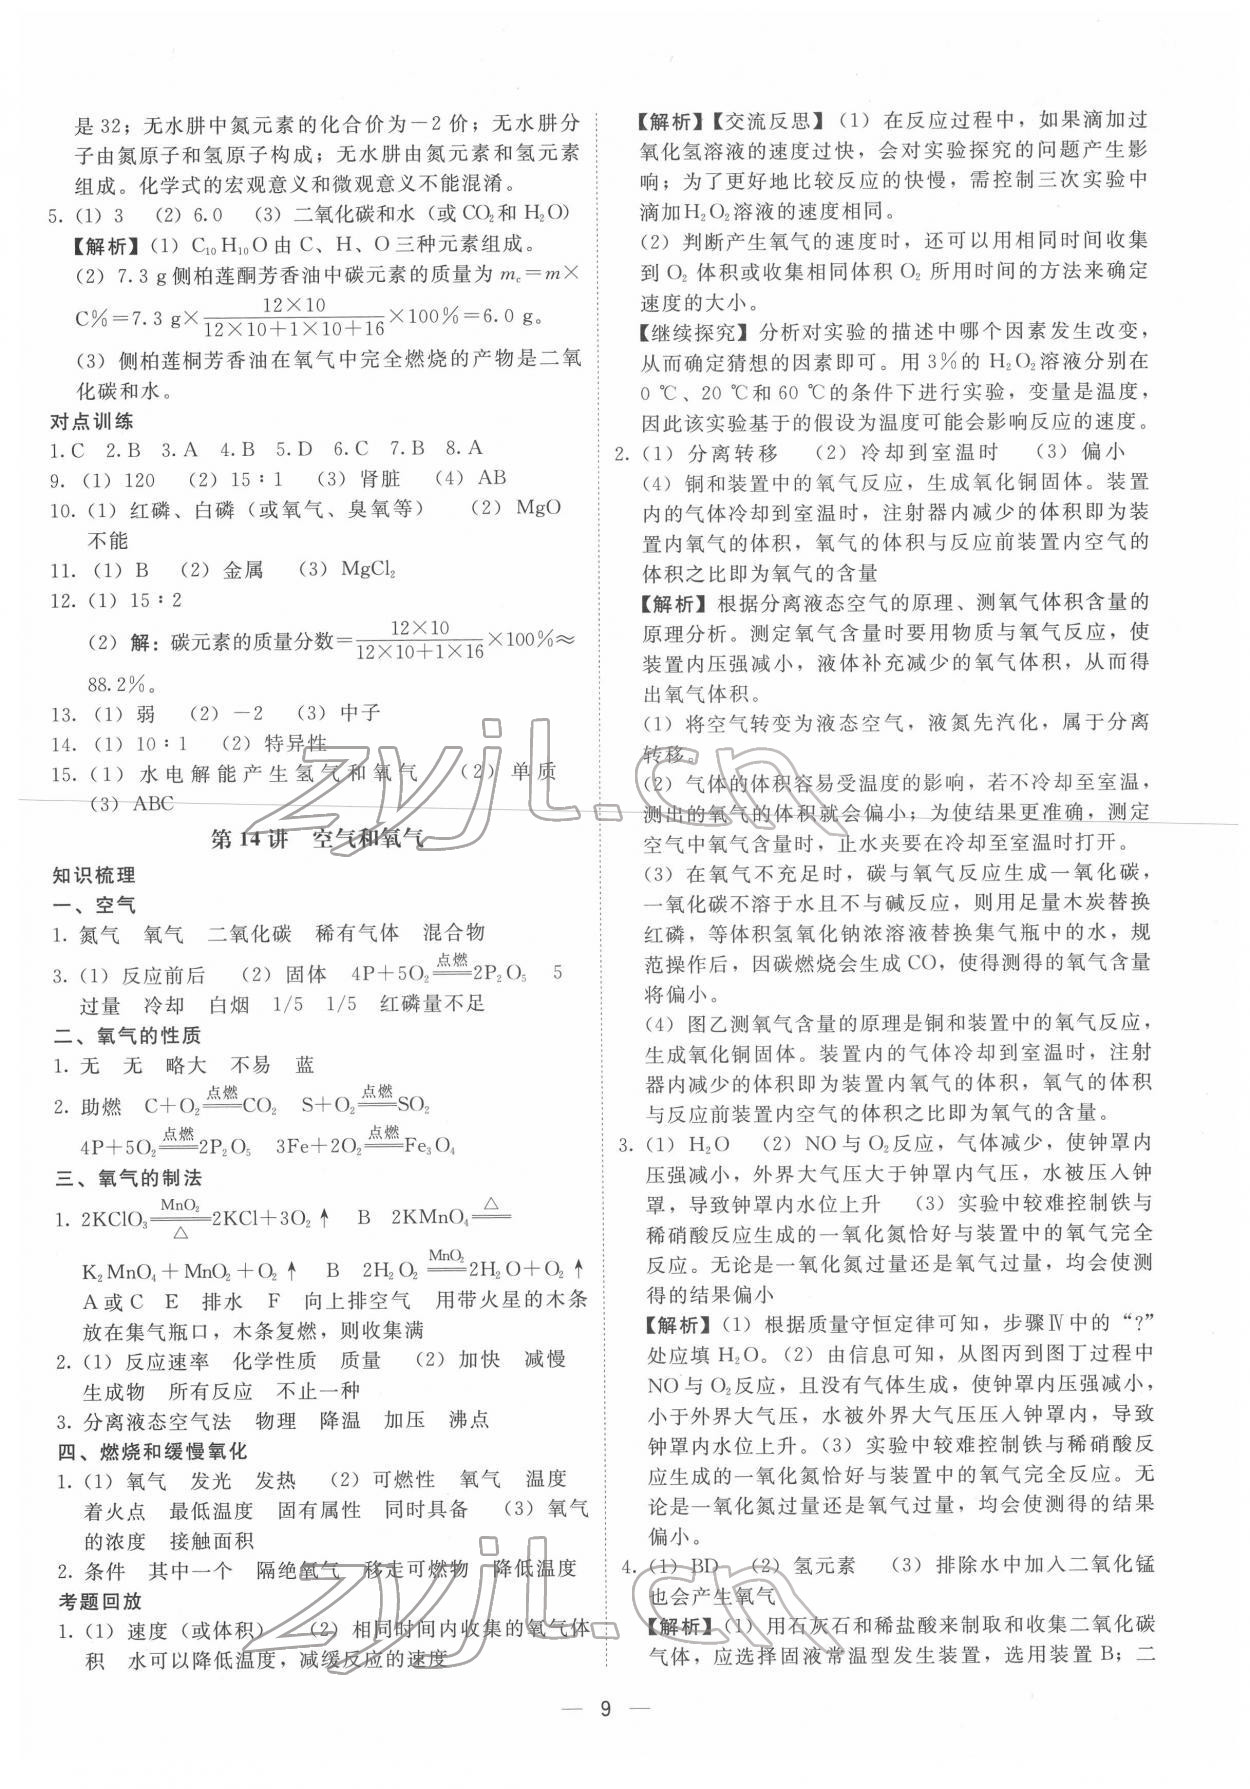 是32；无水肼中氮元素的化合价为－2价；无水肼分
子由氮原子和氢原子构成；无水肼由氮元素和氢元素
组成。化学式的宏观意义和微观意义不能混淆。
5. (1) 3　(2) 6.0　(3) 二氧化碳和水（或CO₂和H₂O）
【解析】(1) C₁₀H₁₀O由C、H、O三种元素组成。
(2) 7.3 g侧柏莲酮芳香油中碳元素的质量为 m꜀＝m×
C%＝7.3 g×(12×10)/(12×10＋1×10＋16)×100%＝6.0 g。
(3) 侧柏莲桐芳香油在氧气中完全燃烧的产物是二氧
化碳和水。
对点训练
1. C　2. B　3. A　4. B　5. D　6. C　7. B　8. A
9. (1) 120　(2) 15∶1　(3) 肾脏　(4) AB
10. (1) 红磷、白磷（或氧气、臭氧等）　(2) MgO
不能
11. (1) B　(2) 金属　(3) MgCl₂
12. (1) 15∶2
(2) 解：碳元素的质量分数＝(12×10)/(12×10＋1×16)×100%≈
88.2%。
13. (1) 弱　(2) －2　(3) 中子
14. (1) 10∶1　(2) 特异性
15. (1) 水电解能产生氢气和氧气　(2) 单质
(3) ABC
第14讲　空气和氧气
知识梳理
一、空气
1. 氮气　氧气　二氧化碳　稀有气体　混合物
3. (1) 反应前后　(2) 固体　4P＋5O₂ ═点燃═ 2P₂O₅　5
过量　冷却　白烟　1/5　1/5　红磷量不足
二、氧气的性质
1. 无　无　略大　不易　蓝
2. 助燃　C＋O₂ ═点燃═ CO₂　S＋O₂ ═点燃═ SO₂
4P＋5O₂ ═点燃═ 2P₂O₅　3Fe＋2O₂ ═点燃═ Fe₃O₄
三、氧气的制法
1. 2KClO₃ ═MnO₂/△═ 2KCl＋3O₂↑　B　2KMnO₄ ═△═
K₂MnO₄＋MnO₂＋O₂↑　B　2H₂O₂ ═MnO₂═ 2H₂O＋O₂↑
A或C　E　排水　F　向上排空气　用带火星的木条
放在集气瓶口，木条复燃，则收集满
2. (1) 反应速率　化学性质　质量　(2) 加快　减慢
生成物　所有反应　不止一种
3. 分离液态空气法　物理　降温　加压　沸点
四、燃烧和缓慢氧化
1. (1) 氧气　发光　发热　(2) 可燃性　氧气　温度
着火点　最低温度　固有属性　同时具备　(3) 氧气
的浓度　接触面积
2. 条件　其中一个　隔绝氧气　移走可燃物　降低温度
考题回放
1. (1) 速度（或体积）　(2) 相同时间内收集的氧气体
积　水可以降低温度，减缓反应的速度
【解析】【交流反思】(1) 在反应过程中，如果滴加过
氧化氢溶液的速度过快，会对实验探究的问题产生影
响；为了更好地比较反应的快慢，需控制三次实验中
滴加H₂O₂溶液的速度相同。
(2) 判断产生氧气的速度时，还可以用相同时间收集
到O₂体积或收集相同体积O₂所用时间的方法来确定
速度的大小。
【继续探究】分析对实验的描述中哪个因素发生改变，
从而确定猜想的因素即可。用3%的H₂O₂溶液分别在
0 ℃、20 ℃和60 ℃的条件下进行实验，变量是温度，
因此该实验基于的假设为温度可能会影响反应的速度。
2. (1) 分离转移　(2) 冷却到室温时　(3) 偏小
(4) 铜和装置中的氧气反应，生成氧化铜固体。装置
内的气体冷却到室温时，注射器内减少的体积即为装
置内氧气的体积，氧气的体积与反应前装置内空气的
体积之比即为氧气的含量
【解析】根据分离液态空气的原理、测氧气体积含量的
原理分析。测定氧气含量时要用物质与氧气反应，使
装置内压强减小，液体补充减少的氧气体积，从而得
出氧气体积。
(1) 将空气转变为液态空气，液氮先汽化，属于分离
转移。
(2) 气体的体积容易受温度的影响，若不冷却至室温，
测出的氧气的体积就会偏小；为使结果更准确，测定
空气中氧气含量时，止水夹要在冷却至室温时打开。
(3) 在氧气不充足时，碳与氧气反应生成一氧化碳，
一氧化碳不溶于水且不与碱反应，则用足量木炭替换
红磷，等体积氢氧化钠浓溶液替换集气瓶中的水，规
范操作后，因碳燃烧会生成CO，使得测得的氧气含量
将偏小。
(4) 图乙测氧气含量的原理是铜和装置中的氧气反应，
生成氧化铜固体。装置内的气体冷却到室温时，注射
器内减少的体积即为装置内氧气的体积，氧气的体积
与反应前装置内空气的体积之比即为氧气的含量。
3. (1) H₂O　(2) NO与O₂反应，气体减少，使钟罩内
压强减小，外界大气压大于钟罩内气压，水被压人钟
罩，导致钟罩内水位上升　(3) 实验中较难控制铁与
稀硝酸反应生成的一氧化氮恰好与装置中的氧气完全
反应。无论是一氧化氮过量还是氧气过量，均会使测
得的结果偏小
【解析】(1) 根据质量守恒定律可知，步骤Ⅳ中的“?”
处应填H₂O。(2) 由信息可知，从图丙到图丁过程中
NO与O₂反应，且没有气体生成，使钟罩内压强减小，
小于外界大气压，水被外界大气压压人钟罩内，导致
钟罩内水位上升。(3) 实验中较难控制铁与稀硝酸反
应生成的一氧化氮恰好与装置中的氧气完全反应。无
论是一氧化氮过量还是氧气过量，均会使测得的结果
偏小。
4. (1) BD　(2) 氢元素　(3) 排除水中加入二氧化锰
也会产生氧气
【解析】(1) 用石灰石和稀盐酸来制取和收集二氧化碳
气体，应选择固液常温型发生装置，选用装置B；二
— 9 —
zyjl.cn
zyjl.cn